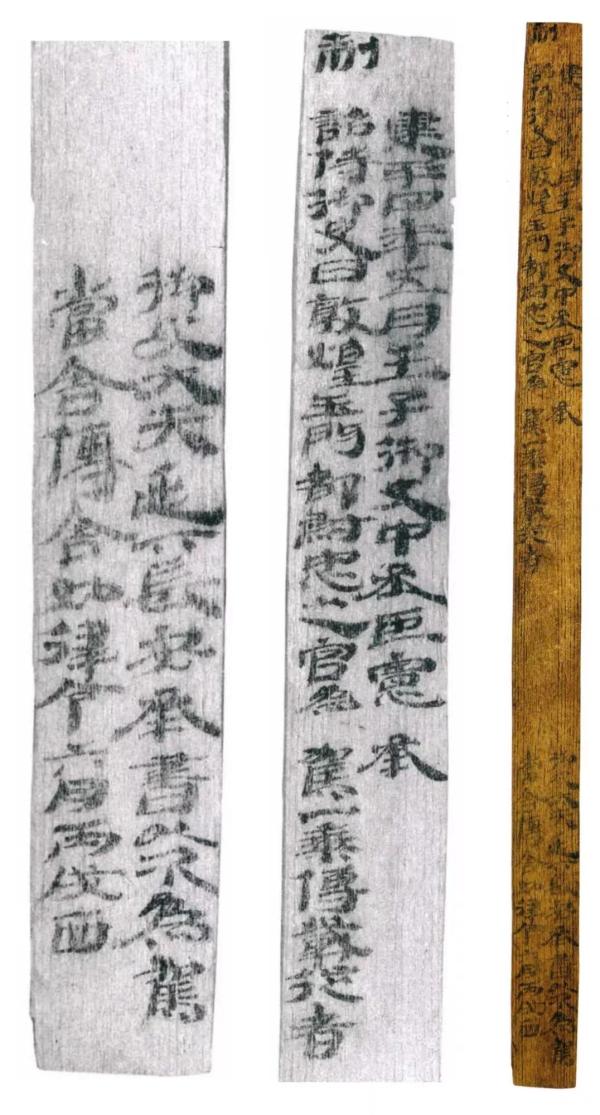 建平四年五月壬子御史中丞臣憲 承
制
詔侍御史曰敦煌玉門都尉忠之官為 駕一乘傳載從者
御史大夫延下長安承書以次為駕
當舍傳舍如律令六月丙戌西
建平四年五月壬子御史中丞臣憲 承
制
詔侍御史曰敦煌玉門都尉忠之官為 駕一乘傳載從者
御史大夫延下長安承書以次為駕
當舍傳舍如律令六月丙戌西